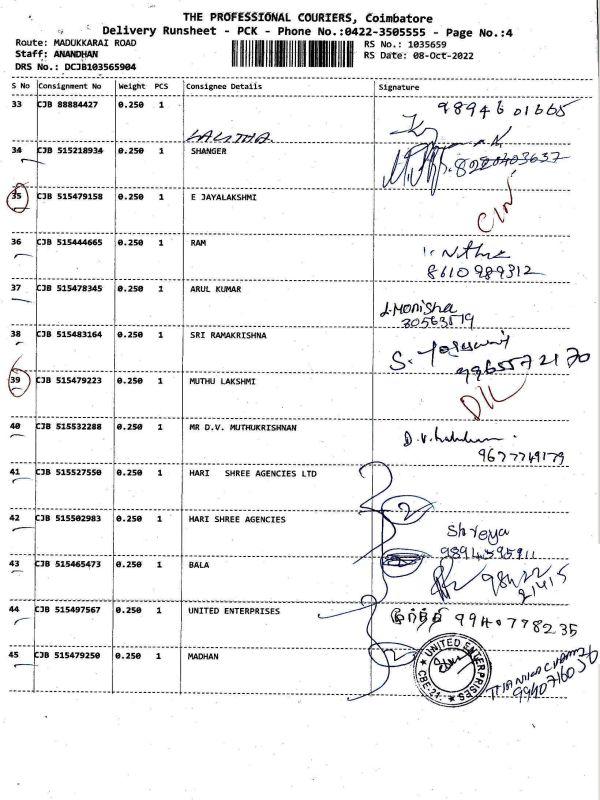 THE PROFESSIONAL COURIERS, Coimbatore
Delivery Runsheet - PCK - Phone No.:0422-3505555 - Page No.:4
Route: MADUKKARAI ROAD
Staff: ANANDHAN
DRS No.: DCJB103565904
RS No.: 1035659
RS Date: 08-Oct-2022
S No Consignment No Weight PCS Consignee Details Signature
33 CJB 88884427 0.250 1 LALITHA 98946 01665
34 CJB 515218934 0.250 1 SHANGER
35 CJB 515479158 0.250 1 E JAYALAKSHMI
36 CJB 515444665 0.250 1 RAM
8610989312
37 CJB 515478345 0.250 1 ARUL KUMAR J.Monisha
38 CJB 515483164 0.250 1 SRI RAMAKRISHNA S.
9965572170
39 CJB 515479223 0.250 1 MUTHU LAKSHMI D/L
40 CJB 515532288 0.250 1 MR D.V. MUTHUKRISHNAN
9677749179
41 CJB 515527550 0.250 1 HARI SHREE AGENCIES LTD
42 CJB 515502983 0.250 1 HARI SHREE AGENCIES Shreya
43 CJB 515465473 0.250 1 BALA 98422
21415
44 CJB 515497567 0.250 1 UNITED ENTERPRISES 9940778235
45 CJB 515479250 0.250 1 MADHAN
UNITED ENTERPRISES
CBE-21.